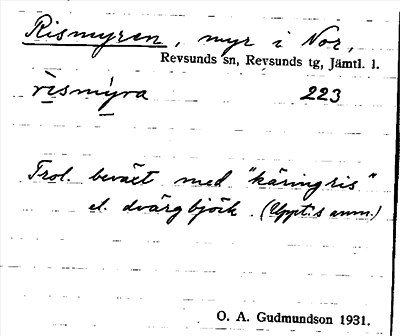 Rismyren, myr i Nor,
Revsunds sn, Revsunds tg, Jämtl. l.
rismýra 223
Trol. beväxt med "käringris"
el. dvärgbjörk. (Uppt:s anm.)
O. A. Gudmundson 1931.